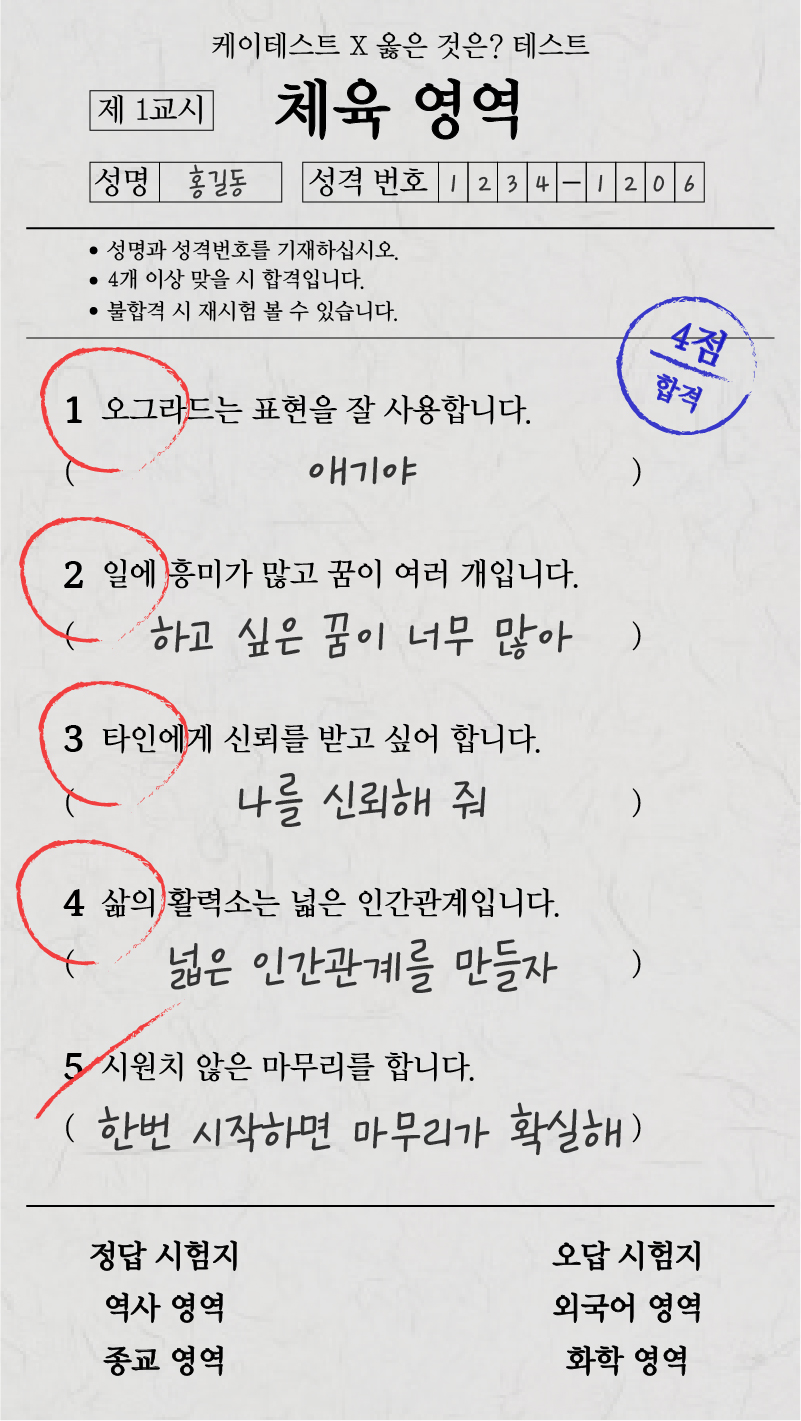 케이테스트 X 옳은 것은? 테스트
제 1교시 체육 영역
성명 홍길동 성격 번호 1 2 3 4 - 1 2 0 6
• 성명과 성격번호를 기재하십시오.
• 4개 이상 맞을 시 합격입니다.
• 불합격 시 재시험 볼 수 있습니다.
4점
합격
1 오그라드는 표현을 잘 사용합니다.
( 애기야 )
2 일에 흥미가 많고 꿈이 여러 개입니다.
( 하고 싶은 꿈이 너무 많아 )
3 타인에게 신뢰를 받고 싶어 합니다.
( 나를 신뢰해 줘 )
4 삶의 활력소는 넓은 인간관계입니다.
( 넓은 인간관계를 만들자 )
5 시원치 않은 마무리를 합니다.
( 한번 시작하면 마무리가 확실해 )
정답 시험지 오답 시험지
역사 영역 외국어 영역
종교 영역 화학 영역